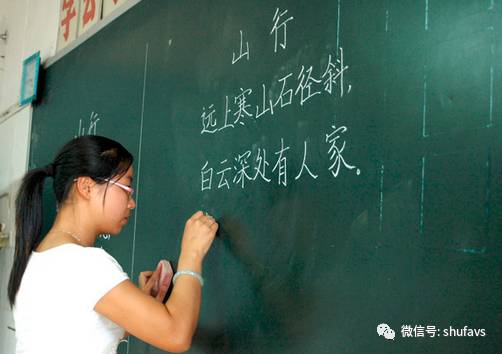 山行
远上寒山石径斜，
白云深处有人家。
山行
微信号: shufavs